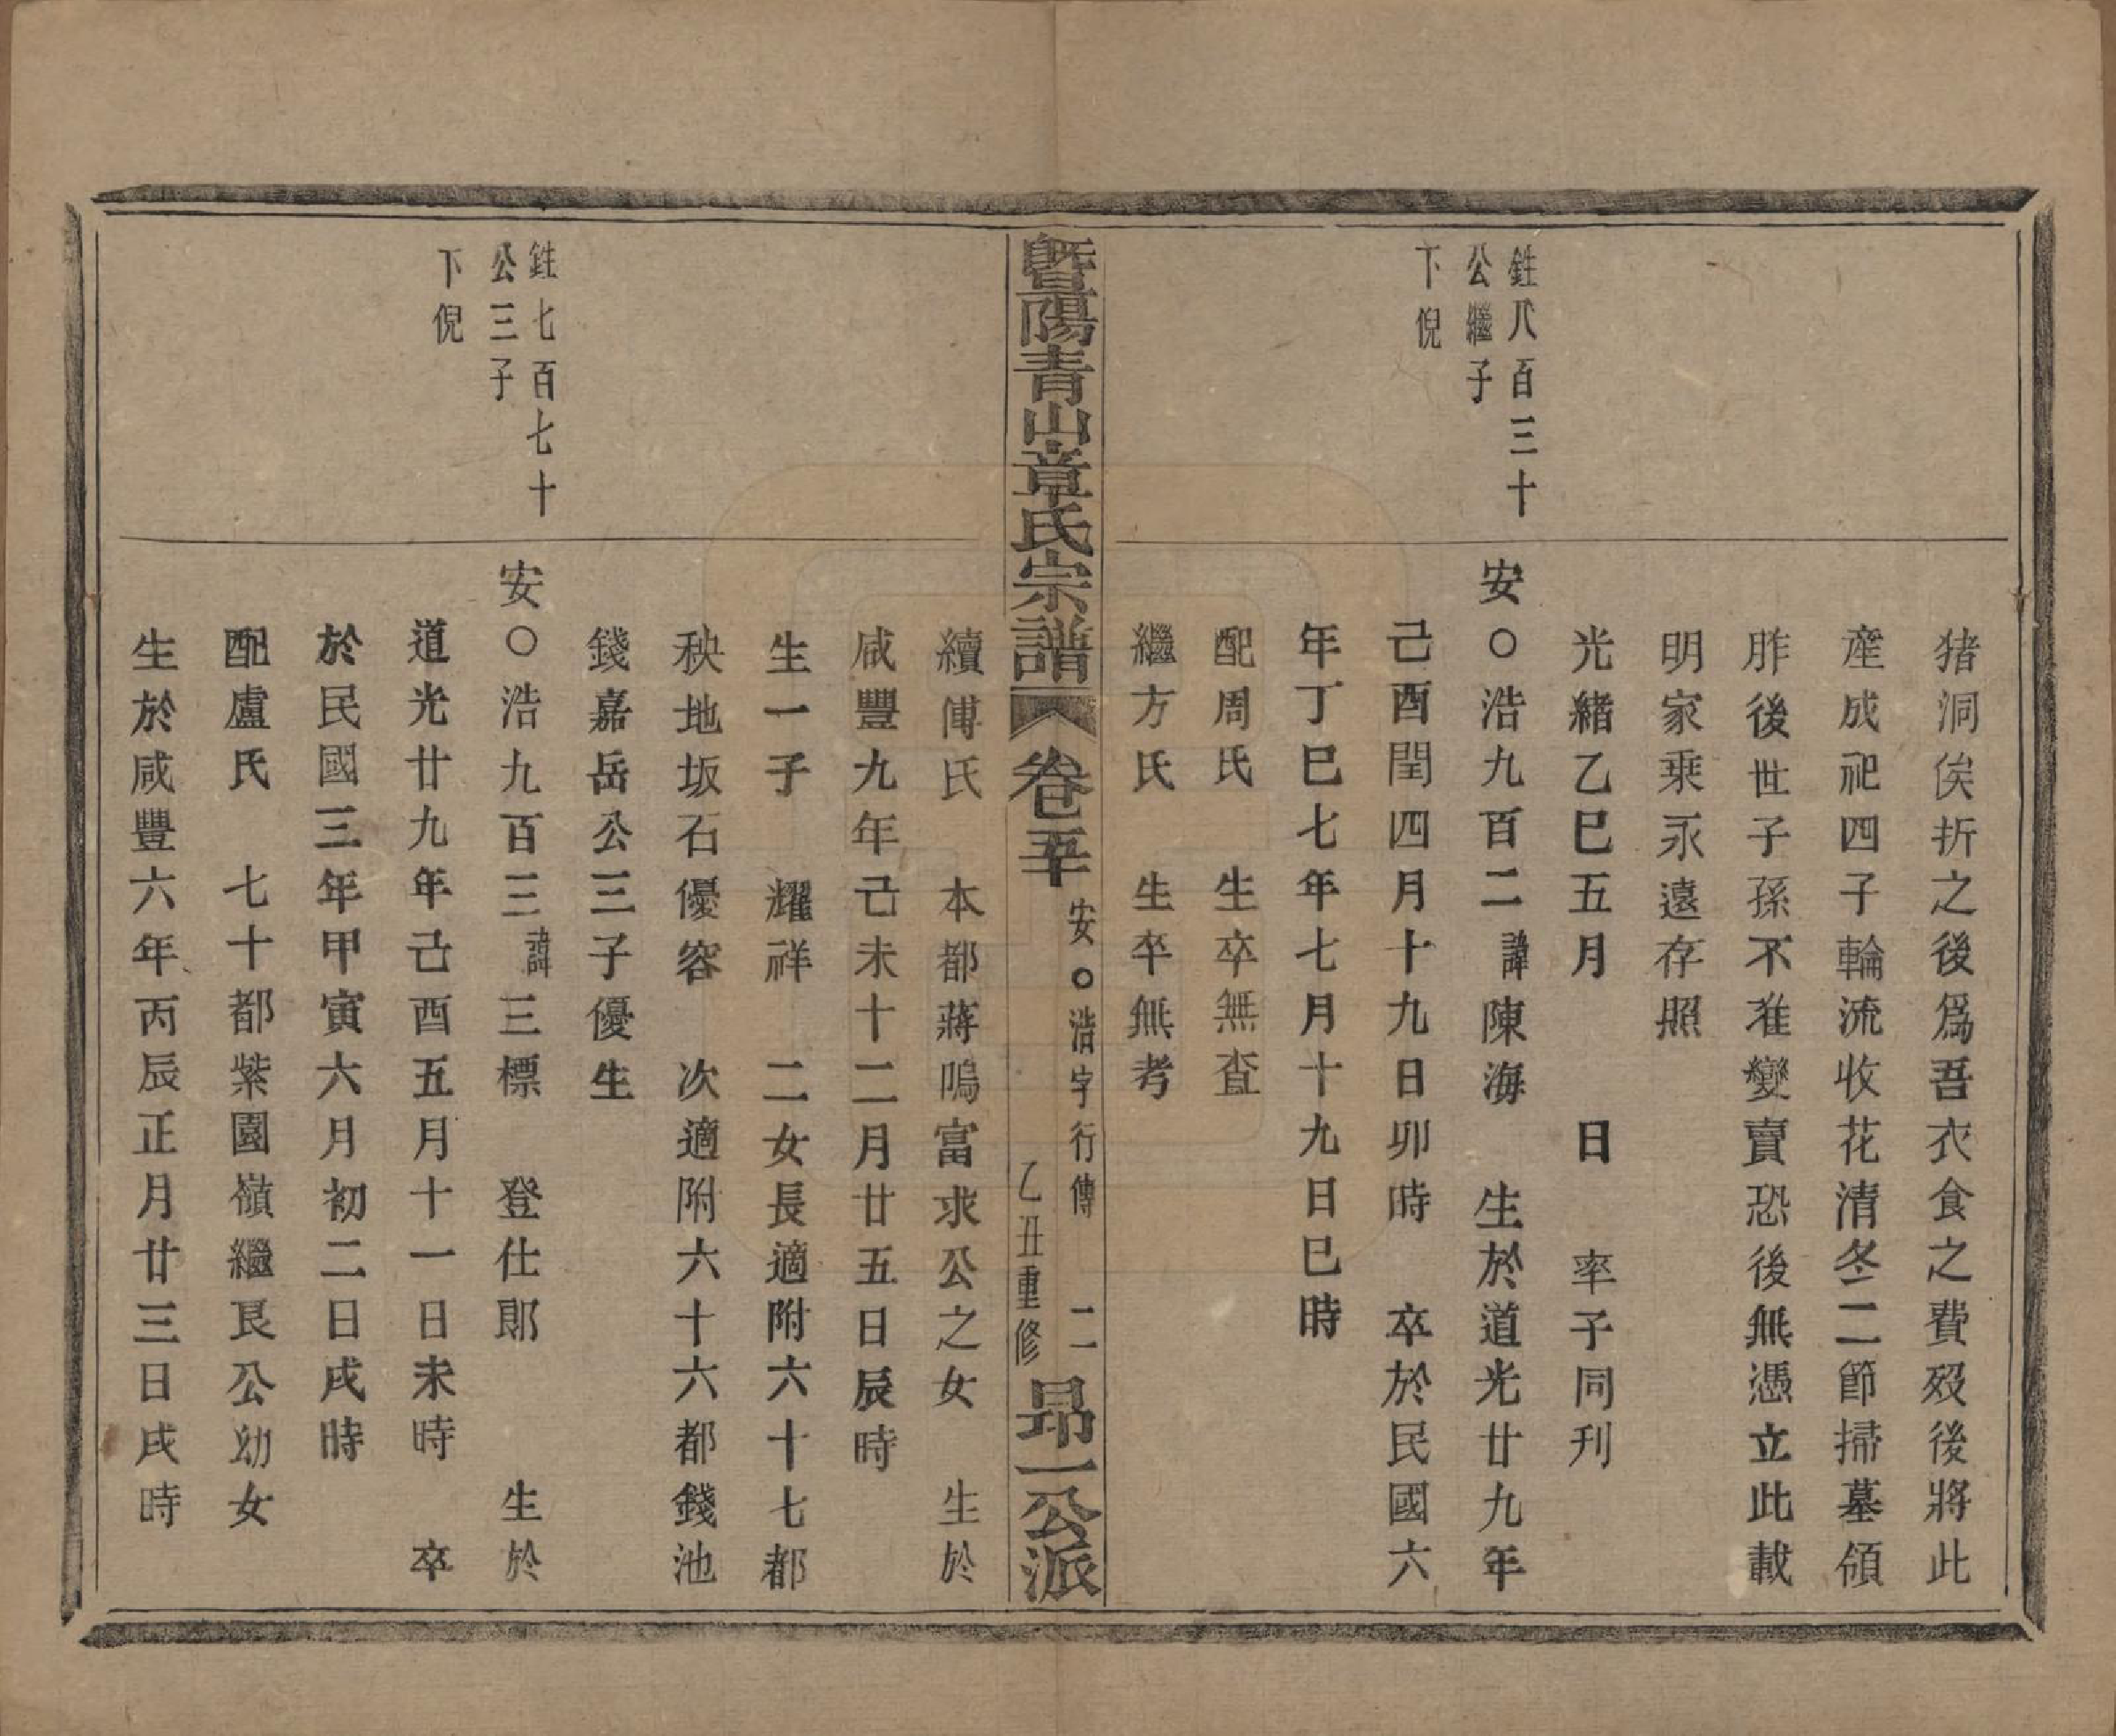 猪洞俟折之後爲吾衣食之費歿後將此
產成祀四子輪流收花清冬二節掃墓領
胙後世子孫不准變賣恐後無憑立此載
明家乘永遠存照
光緒乙巳五月　日　率子同刋
鉎八百三十
公繼子
下倪
安○浩九百二諱陳海　生於道光廿九年
己酉閏四月十九日卯時　卒於民國六
年丁巳七年七月十九日巳時
配周氏　生卒無查
繼方氏　生卒無考
暨陽青山章氏宗譜　卷五十　安○浩字行傳　二　乙丑重修　昻一公派
續傅氏　本都蔣嗚富求公之女　生於
咸豐九年己未十二月廿五日辰時
生一子　耀祥　二女長適附六十七都
秧地坂石優容　次適附六十六都錢池
錢嘉岳公三子優生
鉎七百七十
公三子
下倪
安○浩九百三諱三標　登仕郎　生於
道光廿九年己酉五月十一日未時　卒
於民國三年甲寅六月初二日戌時
配盧氏　七十都紫園嶺繼艮公幼女
生於咸豐六年丙辰正月廿三日戌時